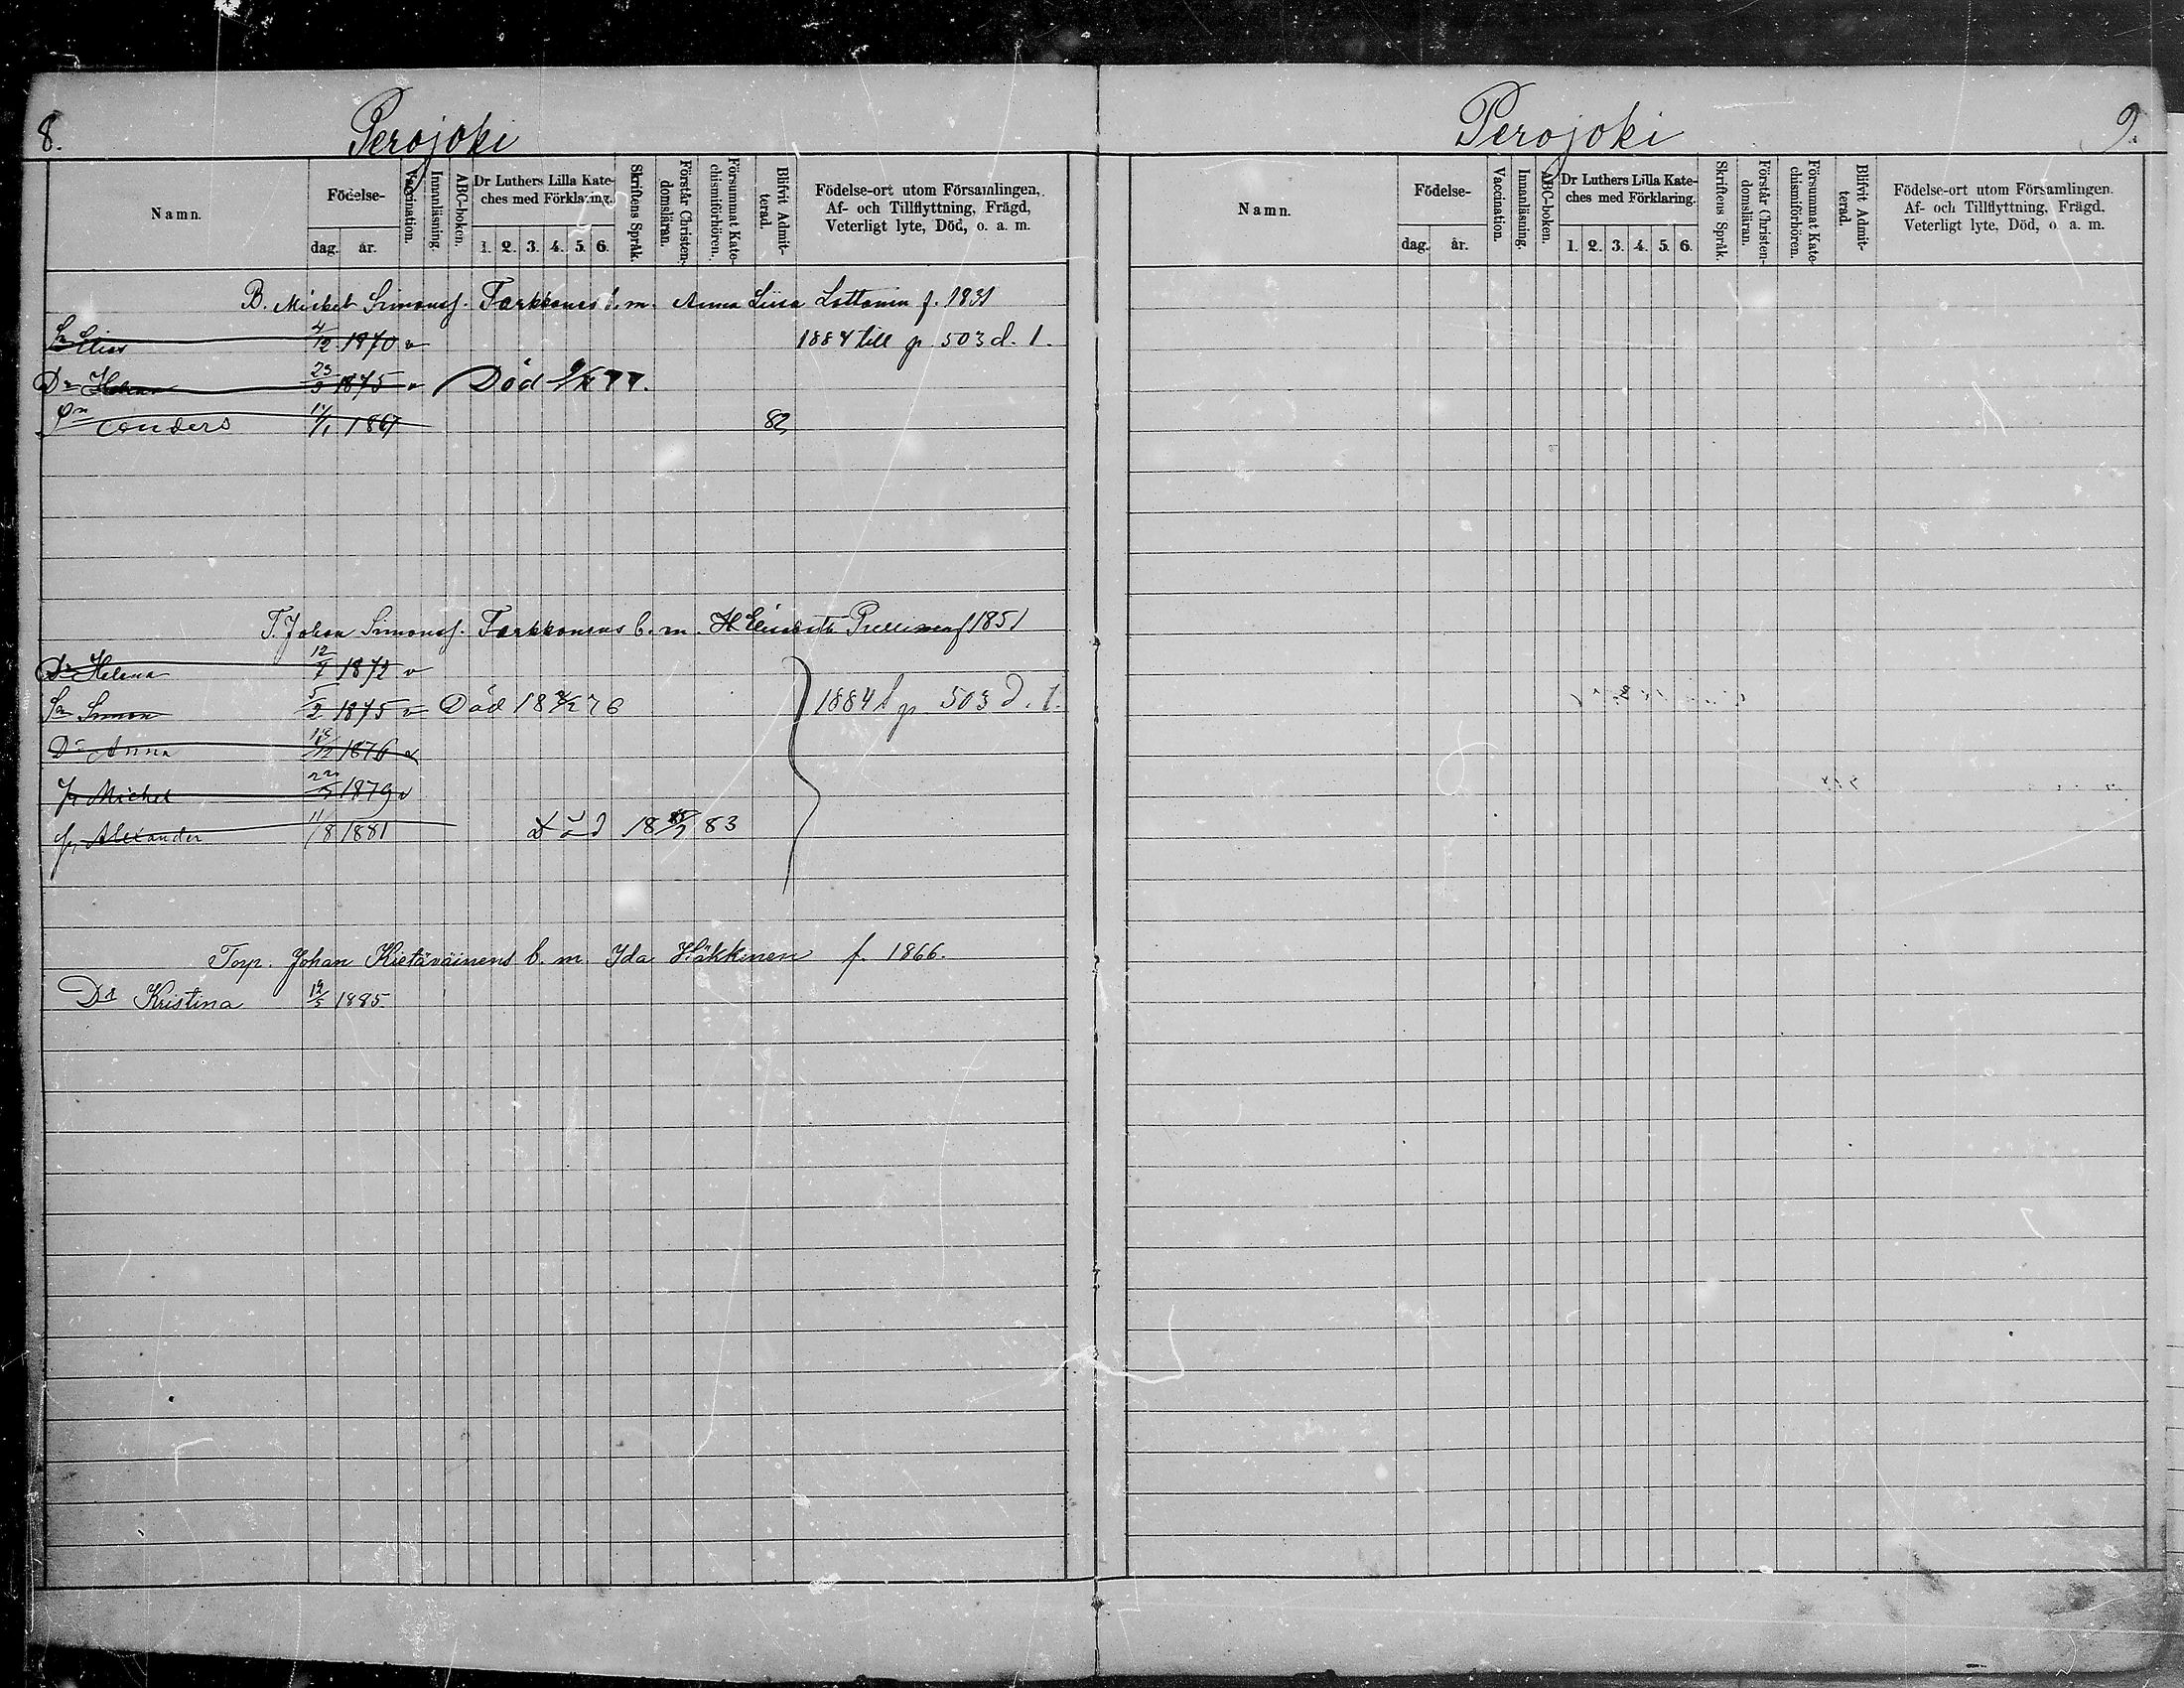 8.
Perojoki
Namn.
Födelse-
dag.
år.
Vaccination.
Innanläsning.
ABC-boken.
Dr Luthers Lilla Kate-
ches med Förklaring.
1. 2. 3. 4. 5. 6.
Skriftens Språk.
Förstår Christen-
domsläran.
Försummat Kate-
chismiförhören.
Blifvit Admit-
terad.
Födelse-ort utom Församlingen,
Af- och Tillflyttning, Frägd,
Veterligt lyte, Död, o. a. m.
B. Michel Simonss. Tarkkanens b. m. Anna Liisa Lottonen f. 1831
Sn Elias 4/12 1870 v 1884 till p. 503 d. 1.
Dr 23/3 1875 v Död 77.
Sn Anders 11/1 1867 82
T. Johan Simonss. Tarkkonens b. m. H Elisabeth f 1851
Dr Helena 12/7 1872 v
Sn Simon 5/2 1875 v Död 18 76
1884 p. 503 d. 1.
Dr Anna 1876 v
Michel 22/5 1879 v
Alexander 11/8 1881 Död 18 83
Torp. Johan Kietäväinens b. m. Ida Häkkinen f. 1866.
Dr Kristina 19/5 1885.
Perojoki
9.
Namn.
Födelse-
dag.
år.
Vaccination.
Innanläsning.
ABC-boken.
Dr Luthers Lilla Kate-
ches med Förklaring.
1. 2. 3. 4. 5. 6.
Skriftens Språk.
Förstår Christen-
domsläran.
Försummat Kate-
chismiförhören.
Blifvit Admit-
terad.
Födelse-ort utom Församlingen.
Af- och Tillflyttning, Frägd,
Veterligt lyte, Död, o. a. m.